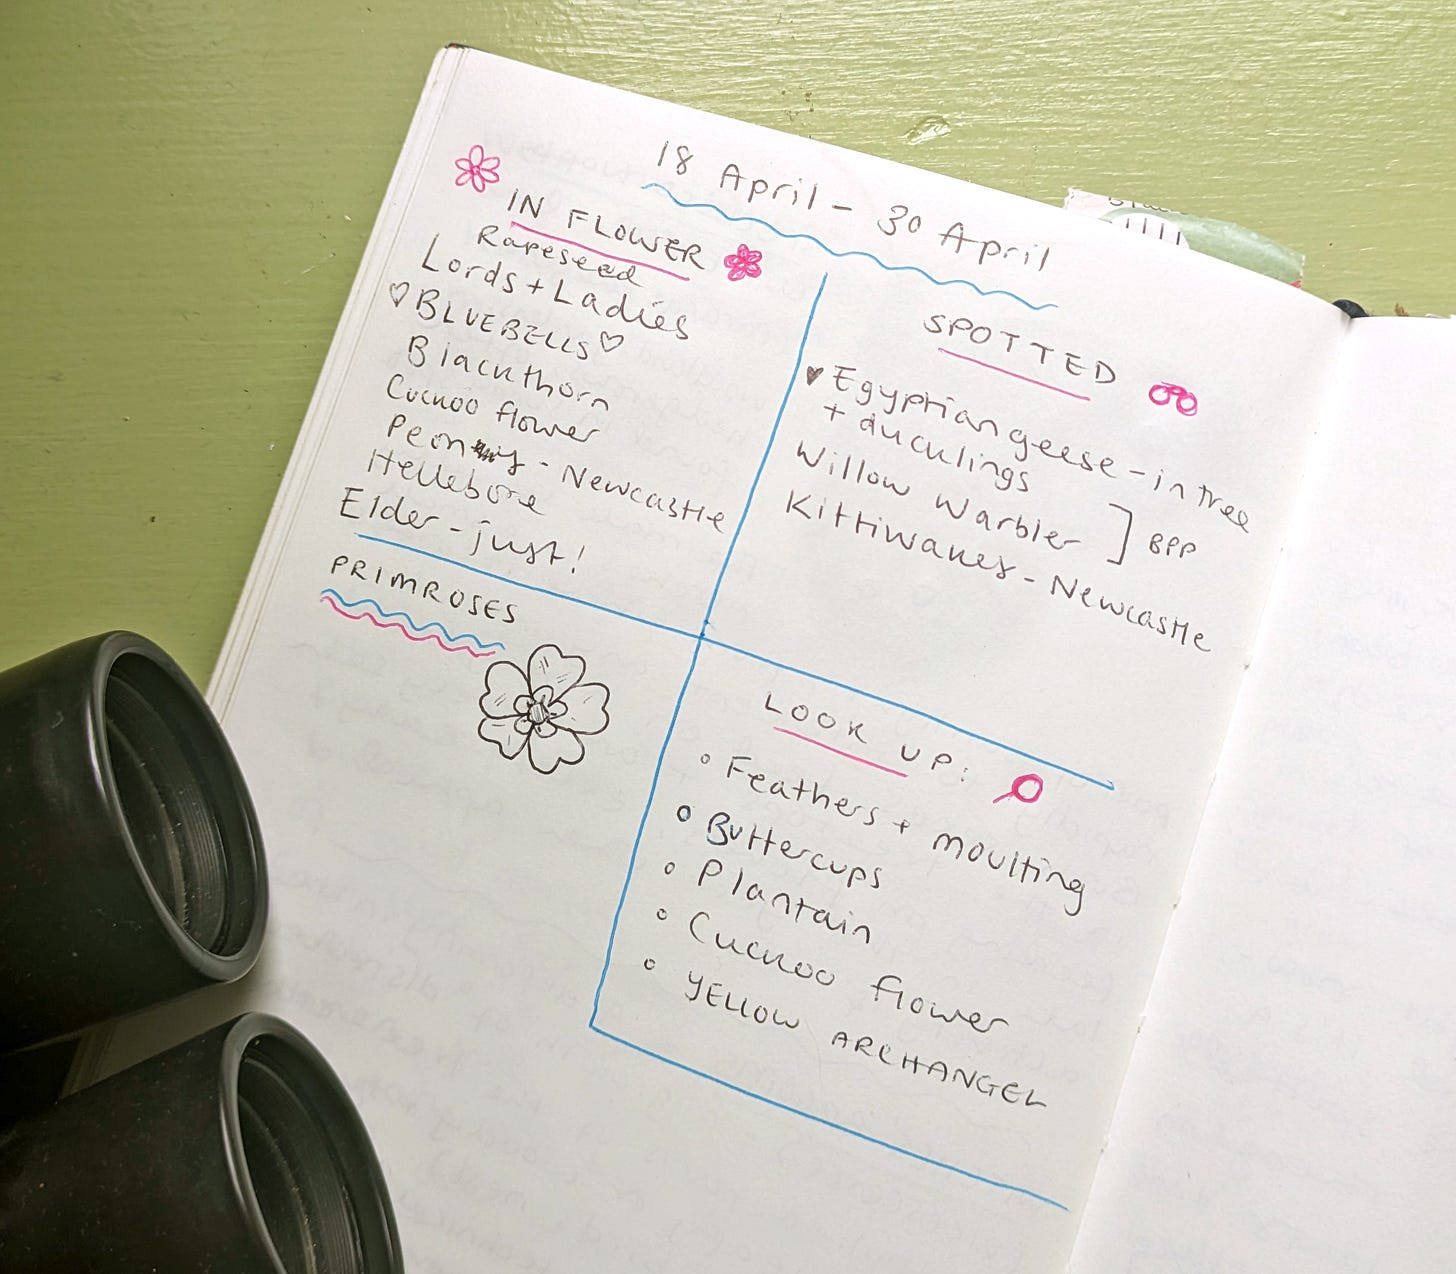 18 April - 30 April
IN FLOWER
Rapeseed
Lords + Ladies
♡ BLUEBELLS ♡
Blackthorn
Cuckoo flower
Peony - Newcastle
Hellebore
Elder - just!
PRIMROSES
SPOTTED
♥ Egyptian geese - in tree
+ duckings
Willow Warbler ] BPP
Kittiwakes - Newcastle
LOOK UP:
◦ Feathers + moulting
◦ Buttercups
◦ Plantain
◦ Cuckoo flower
◦ YELLOW ARCHANGEL